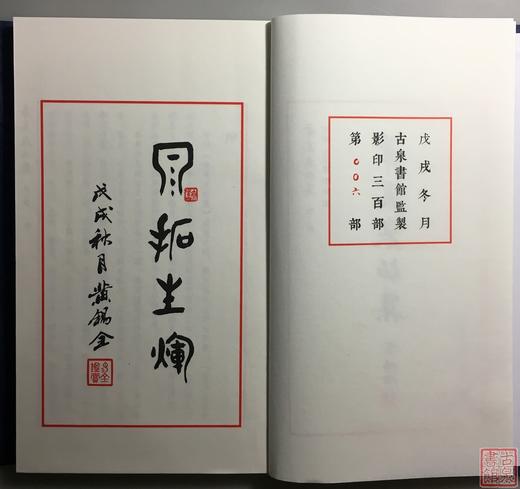 戊戌冬月
古泉書館監製
影印三百部
第〇〇六部
拓生輝
戊戌秋月黄錫全
古泉書館